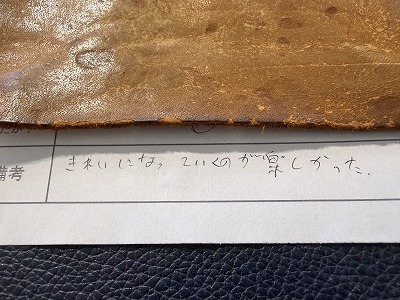 備考
きれいになっていくのが楽しかった.